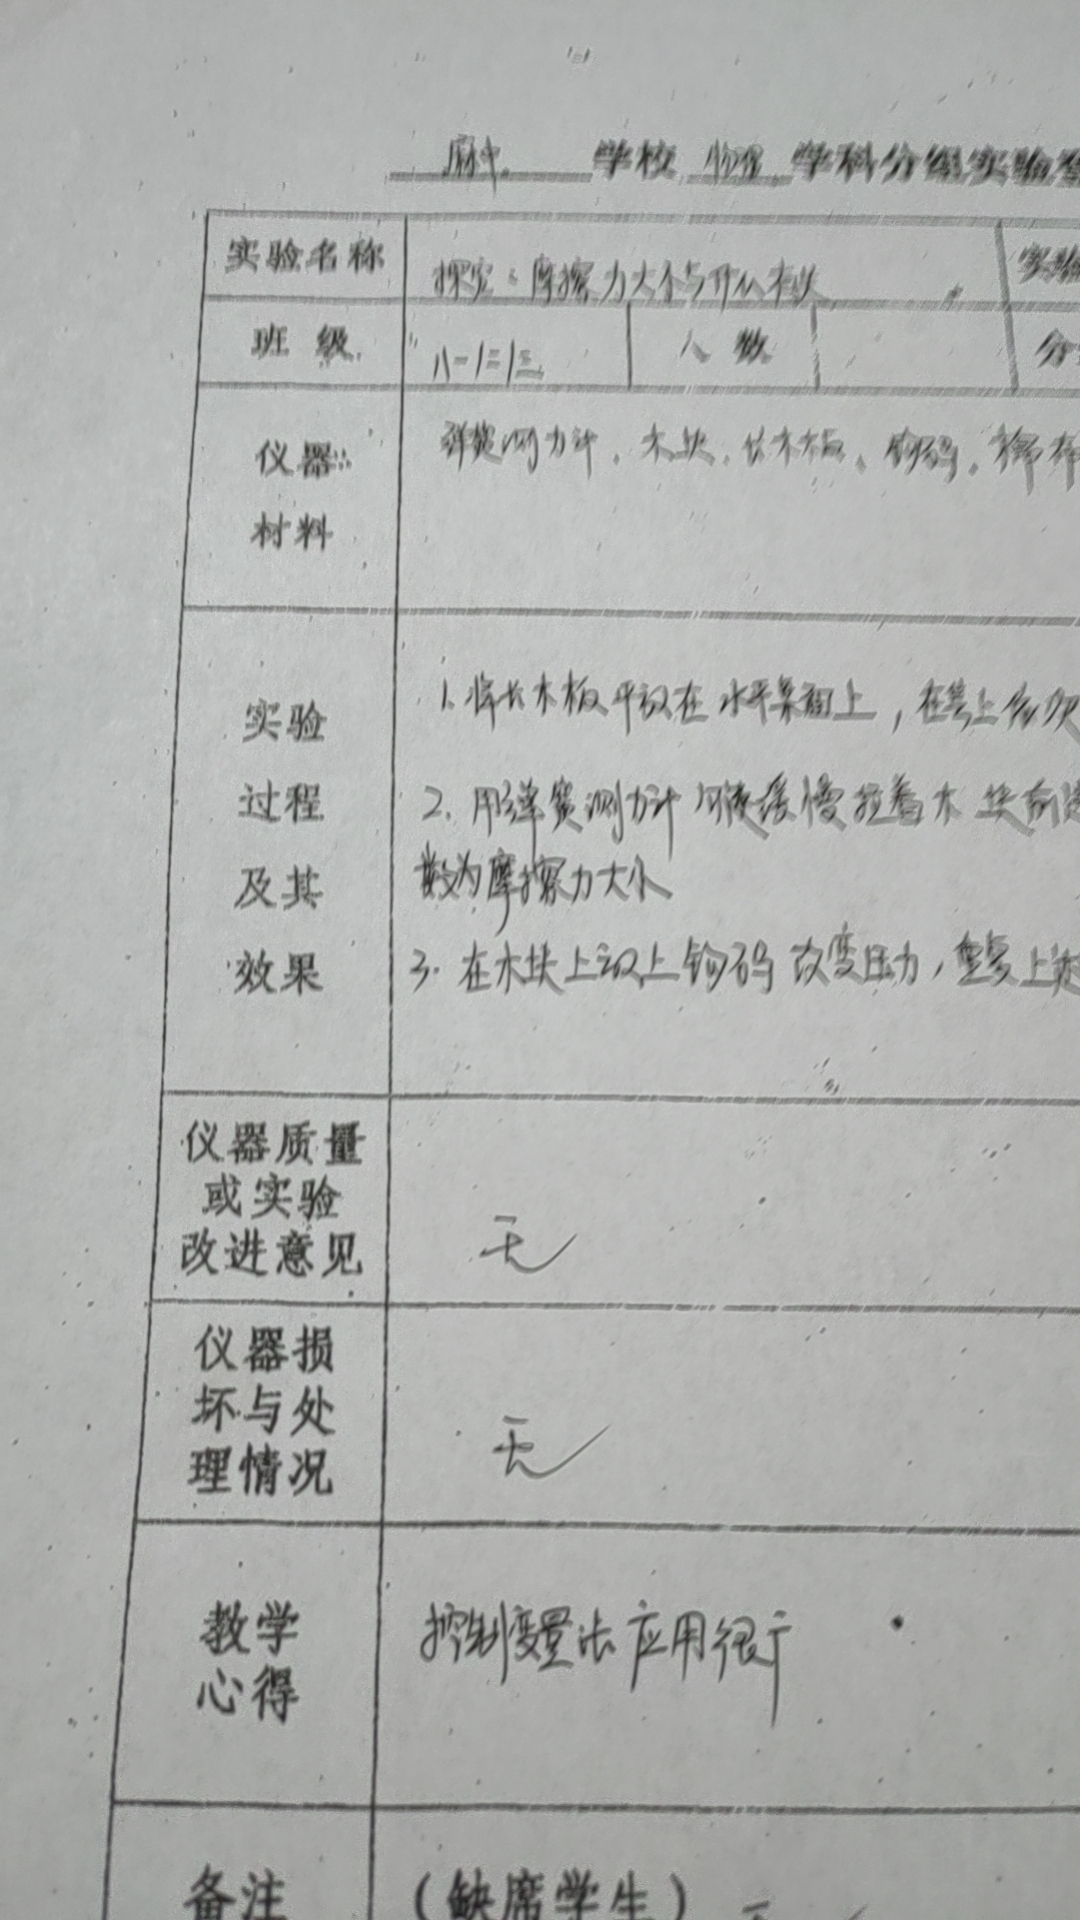 麻中 学校 物理 学科分组实验
实验名称 探究:摩擦力大小与什么有关 实验
班级 八-1=1三 人数 分
仪器 弹簧测力计、木块、长木板、钩码、棉布
材料
实验 1.将长木板平放在水平桌面上,在其上
过程 2.用弹簧测力计 缓慢拉着木块前
及其 数为摩擦力大小
效果 3.在木块上放上钩码改变压力,重复上述
仪器质量
或实验 无
改进意见
仪器损
坏与处 无
理情况
教学 控制变量法应用很广
心得
备注 (缺席学生) 无